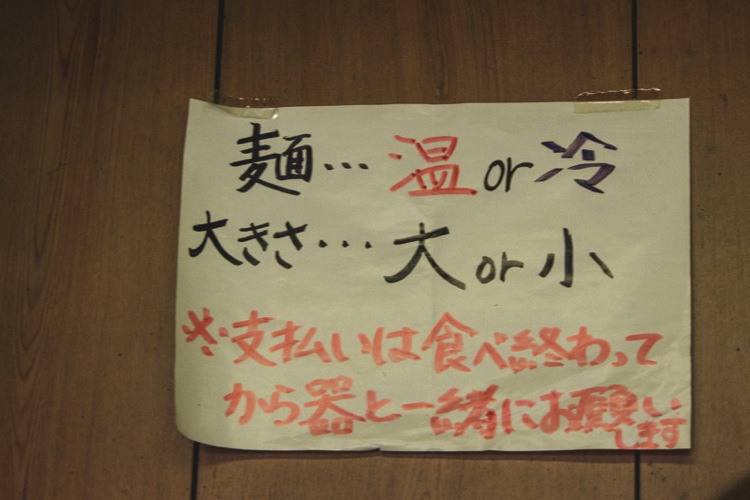 麺…温or冷
大きさ…大or小
※支払いは食べ終わって
から器と一緒にお願い
します